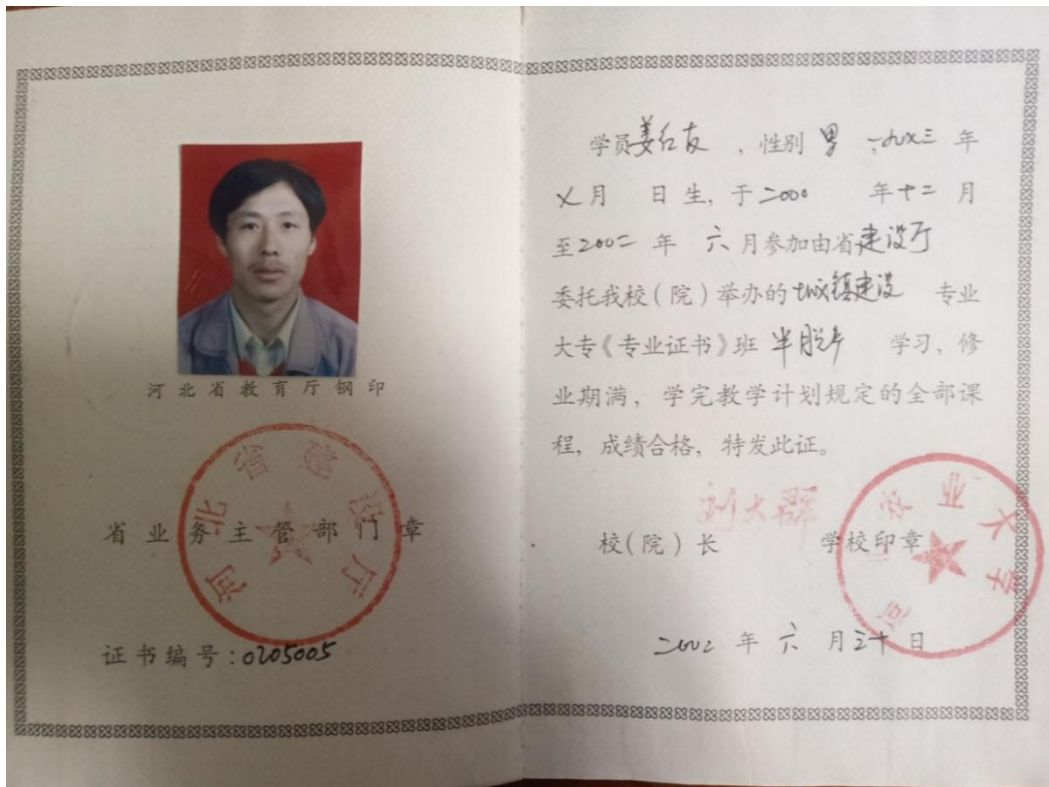 河北省教育厅钢印
河北省建设厅
省业务主管部门章
证书编号：0205005
学员姜红友，性别 男，一九 三年
月 日生，于二000 年十二月
至2002年 六月参加由省建设厅
委托我校（院）举办的城镇建设 专业
大专《专业证书》班 半脱产 学习，修
业期满，学完教学计划规定的全部课
程，成绩合格，特发此证。
刘大群
校（院）长 学校印章
农业大学
二002年 六 月三十日